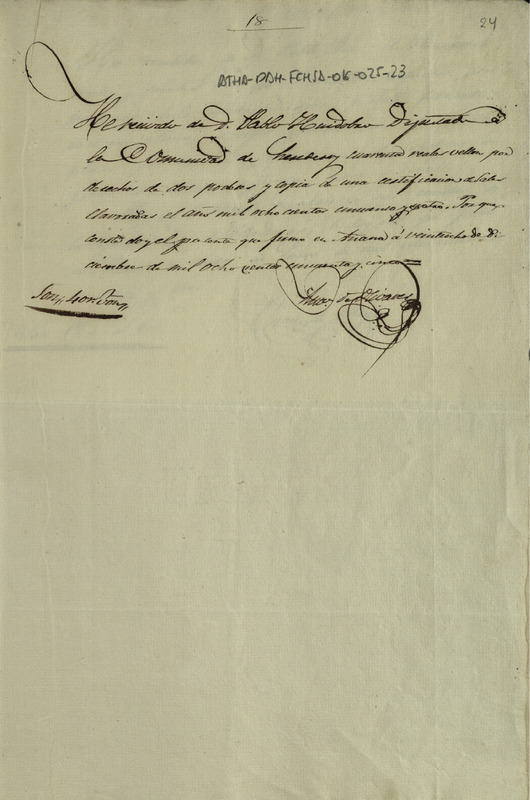 18
24
ATHA-DAH-FCHSA-016-025-23
He recivido de D. Pablo Huidobro Diputado de
la Comunidad de Herederos cuarenta reales vellon por
derechos de dos poderes y copia de una certificacion de Sales
elavoradas el año mil ocho cientos cincuenta y Por que
conste doy el presente que firmo en Añana á veintiocho de Di
ciembre de mil ocho cientos cincuenta y cinco
Son,, 40 r.s von,,